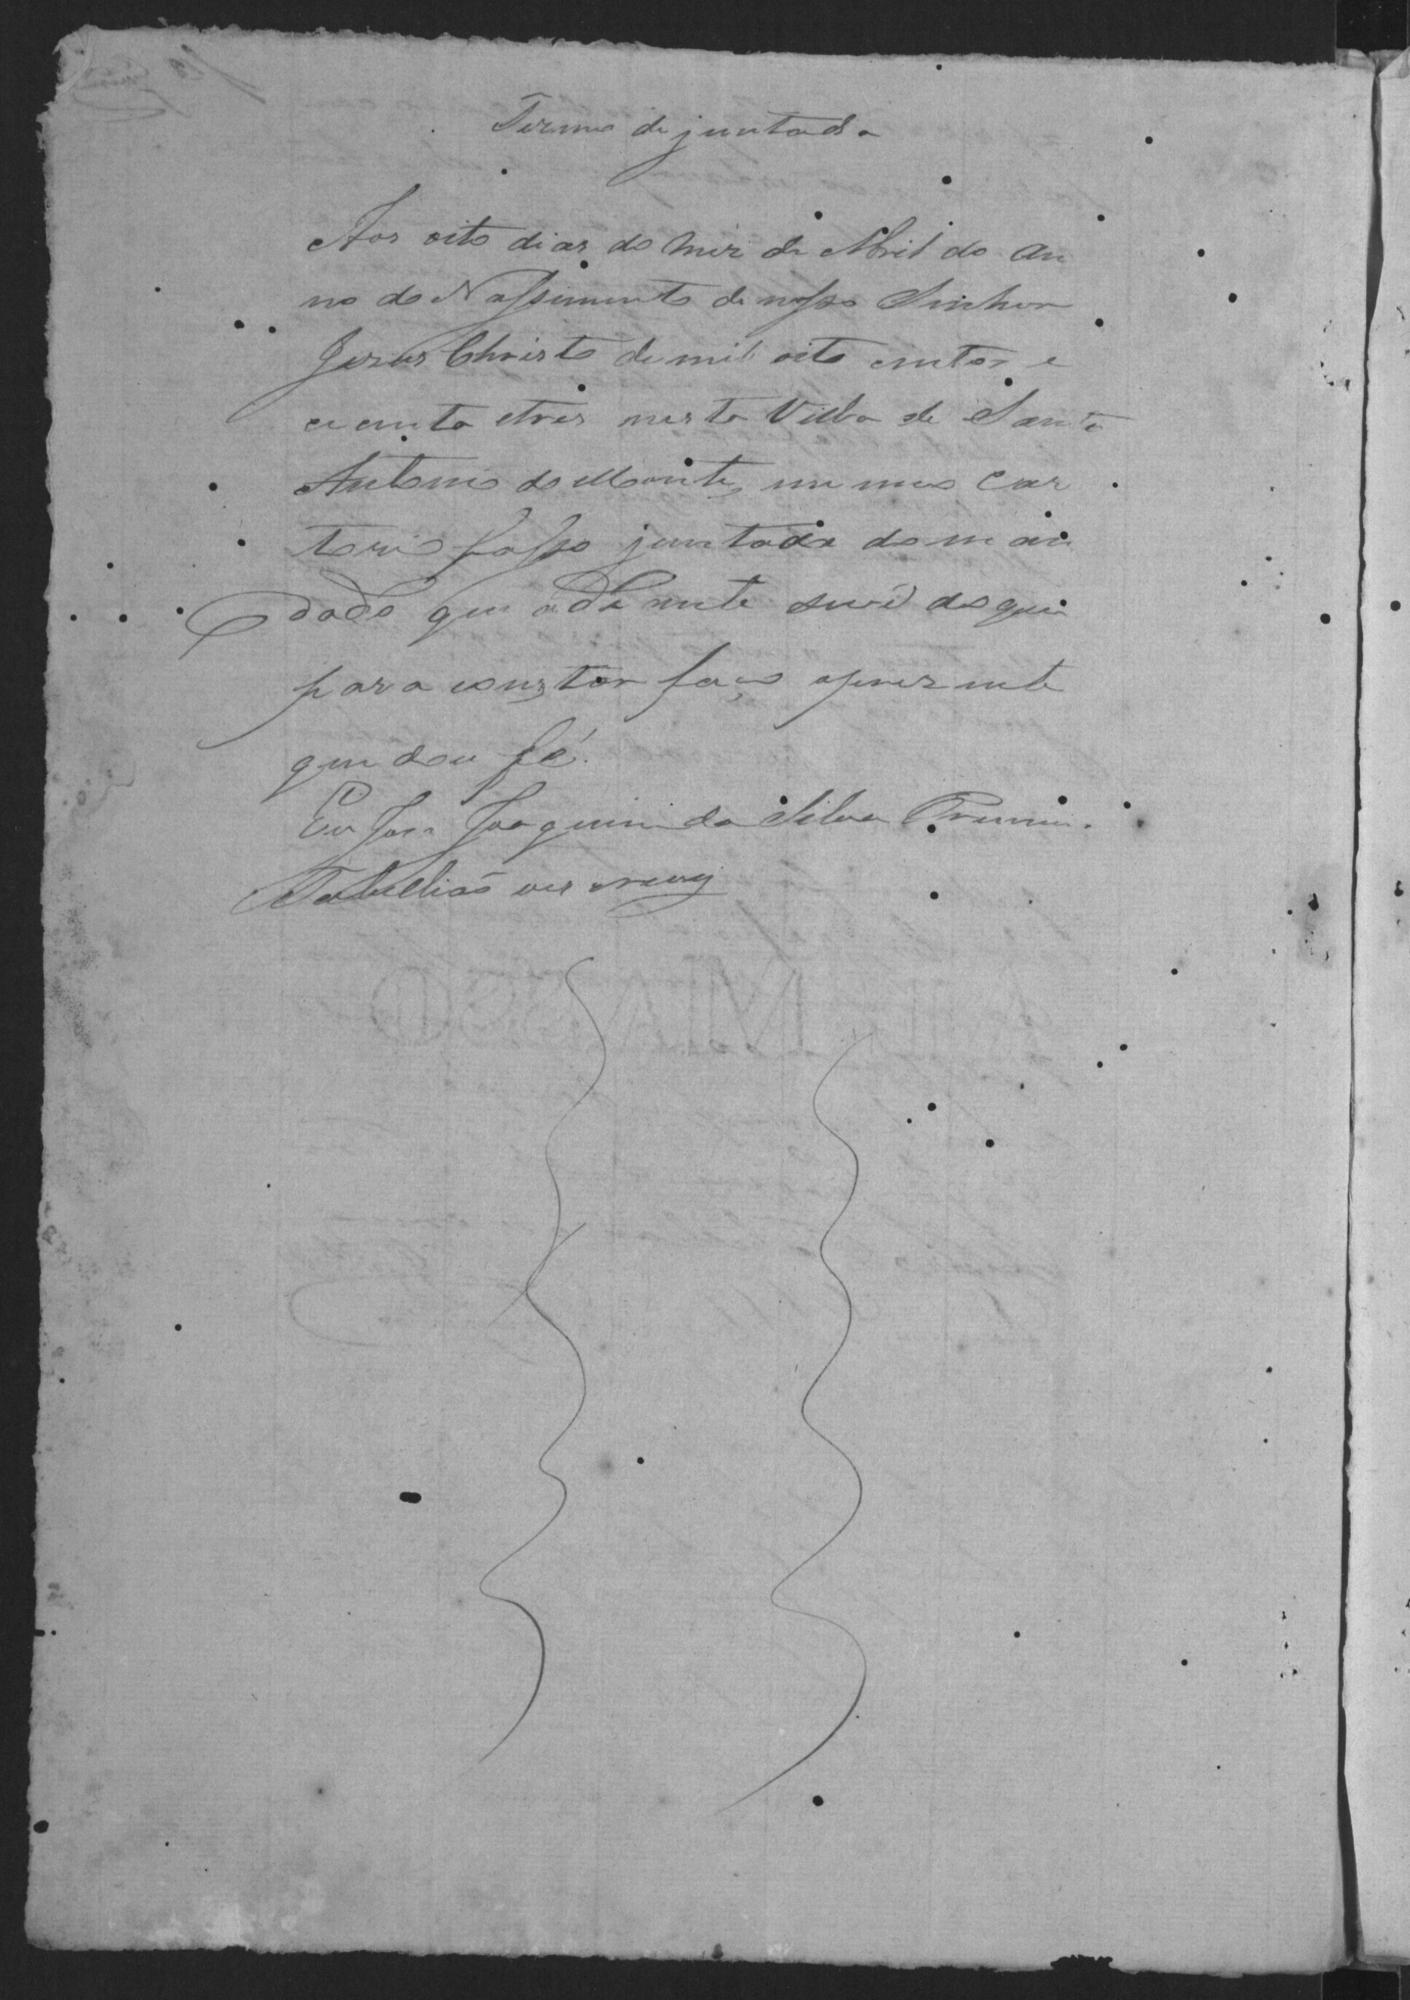 Termo de juntada
Aos oito dias do Mez de Abril do An
no do Nassimento de nosso Sinhor
Jezus Christo de mil oito centos e
cecenta etres nesta Villa de Santo
Antonio do Monte, em meu Car
torio fasso juntada do man
dado que adiante
para constar faço aprezente
que dou fé.
Eu Jose Joaquim da Silva
Tabellião